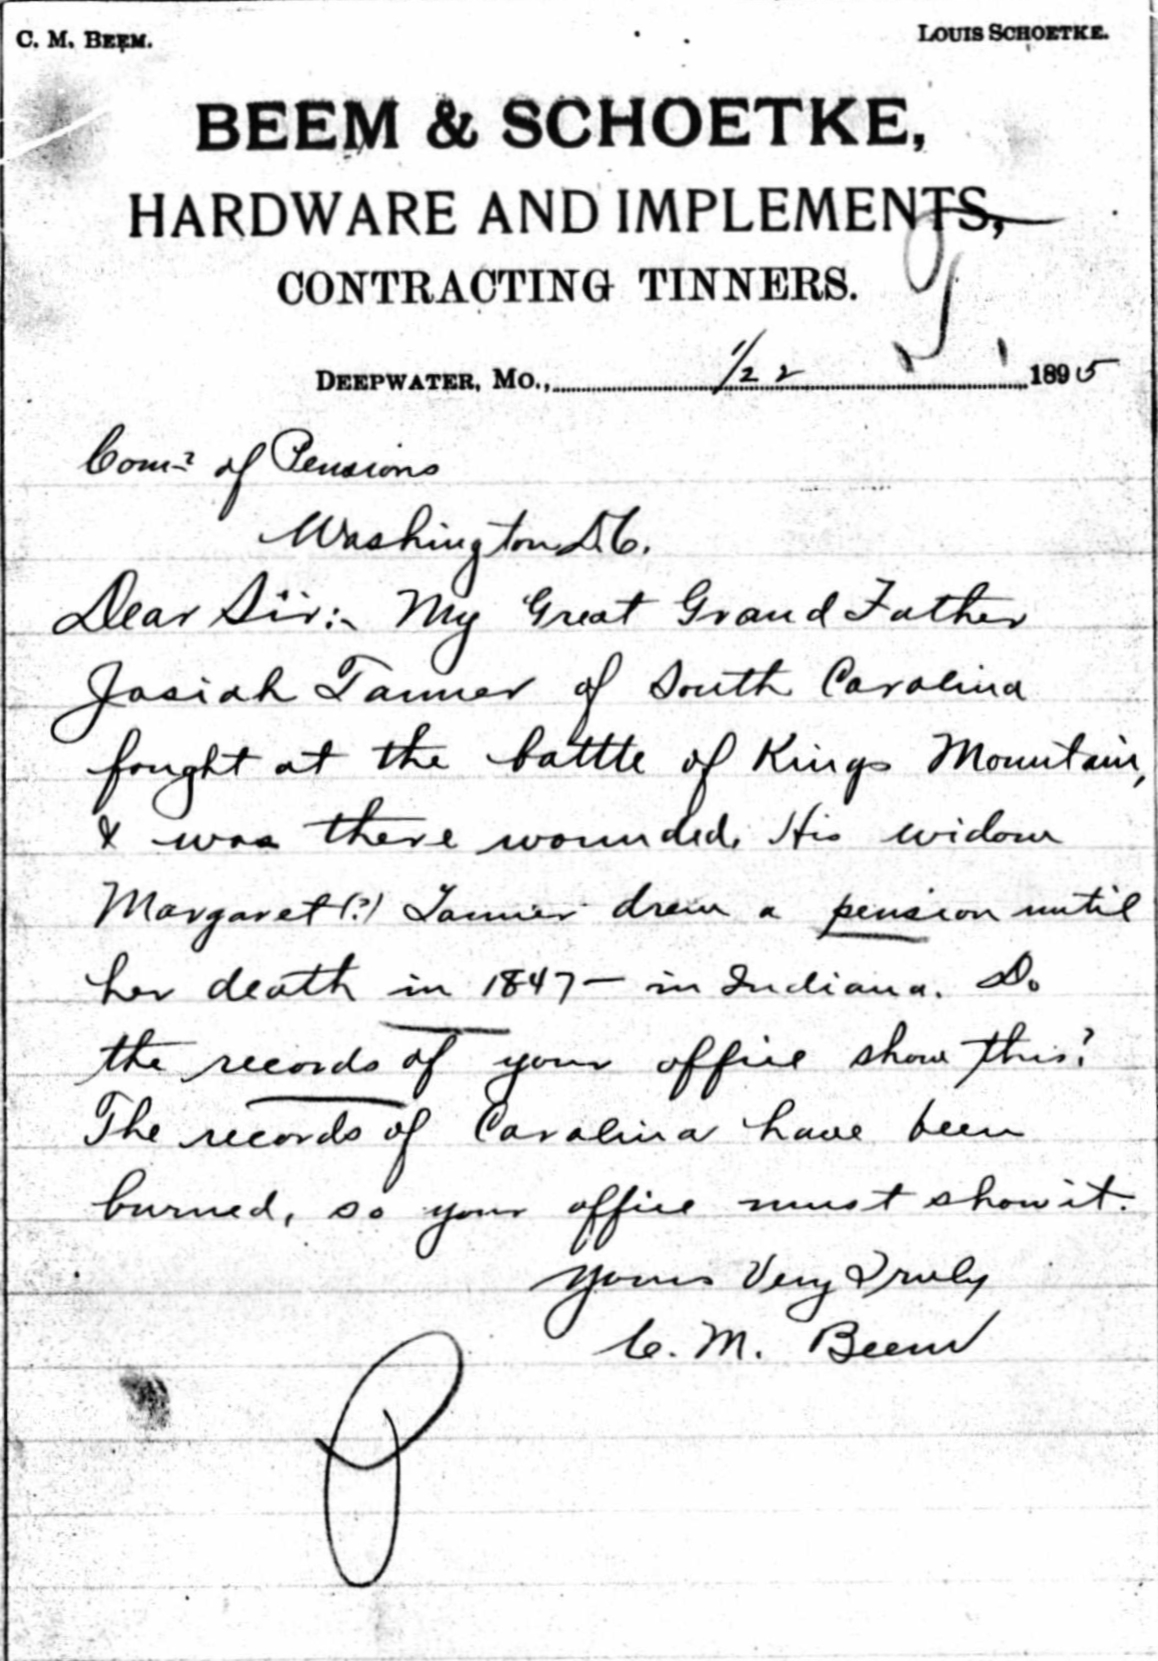 C. M. BEEM. LOUIS SCHOETKE.
BEEM & SCHOETKE,
HARDWARE AND IMPLEMENTS,
CONTRACTING TINNERS.
DEEPWATER, MO., 1/22 1895
Comr of Pensions
Washington D.C.
Dear Sir:- My Great Grand Father
Josiah Tanner of South Carolina
fought at the battle of Kings Mountain,
& was there wounded. His widow
Margaret (?) Tanner drew a pension until
her death in 1847 - in Indiana. Do
the records of your office show this?
The records of Carolina have been
burned, so your office must show it.
Yours Very Truly
C. M. Beem